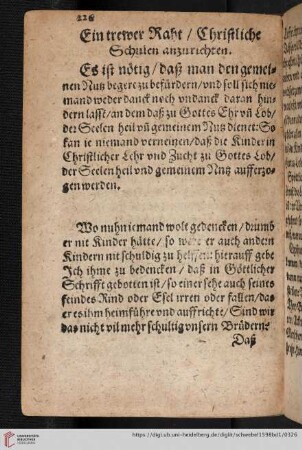 226
Ein trewer Raht / Christliche
Schulen anzurichten.
Es ist nötig / daß man den gemei-
nen Nutz begere zu befürdern / und soll sich nie-
mand weder danck noch vndanck daran hin-
dern lassē / an dem daß zu Gottes Ehr vñ Lob /
der Seelen heil vñ gemeinem Nutz dienet: So
kan ie niemand verneinen / daß die Kinder in
Christlicher Lehr vnd Zucht zu Gottes Lob /
der Seelen heil vnd gemeinem Nutz aufferzo-
gen werden.
Wo nuhn iemand wolt gedencken / drumb
er nit Kinder hätte / so were er auch andern
Kindern nit schuldig zu helffen: hierauff gebe
Ich ihme zu bedencken / daß in Göttlicher
Schrifft gebotten ist / so einer sehe auch seines
feindes Rind oder Esel irren oder fallen / das
er es ihm heimführe vnd auffrichte / Sind wir
das nicht vil mehr schultig vnsern Brüdern:
Daß
https://digi.ub.uni-heidelberg.de/diglit/schwebel1598bd1/0326